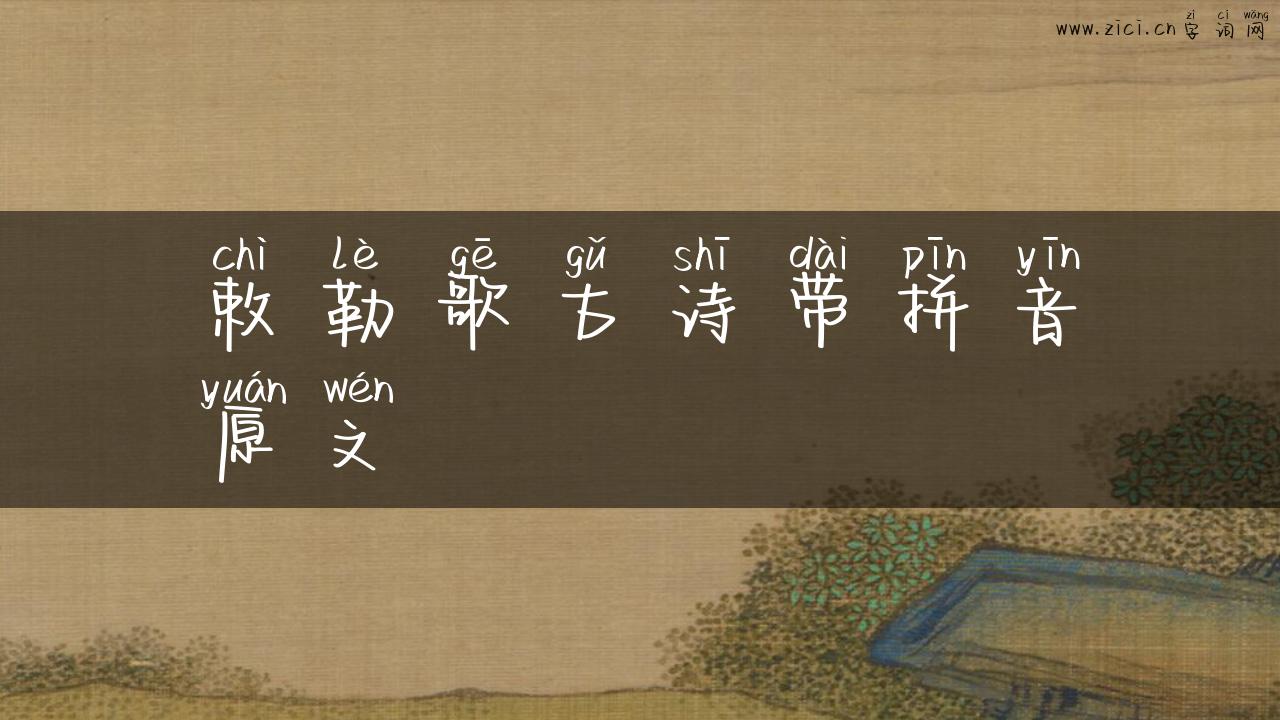 zì cí wǎng
www.zici.cn 字词网
chì lè gē gǔ shī dài pīn yīn
敕勒歌古诗带拼音
yuán wén
原文